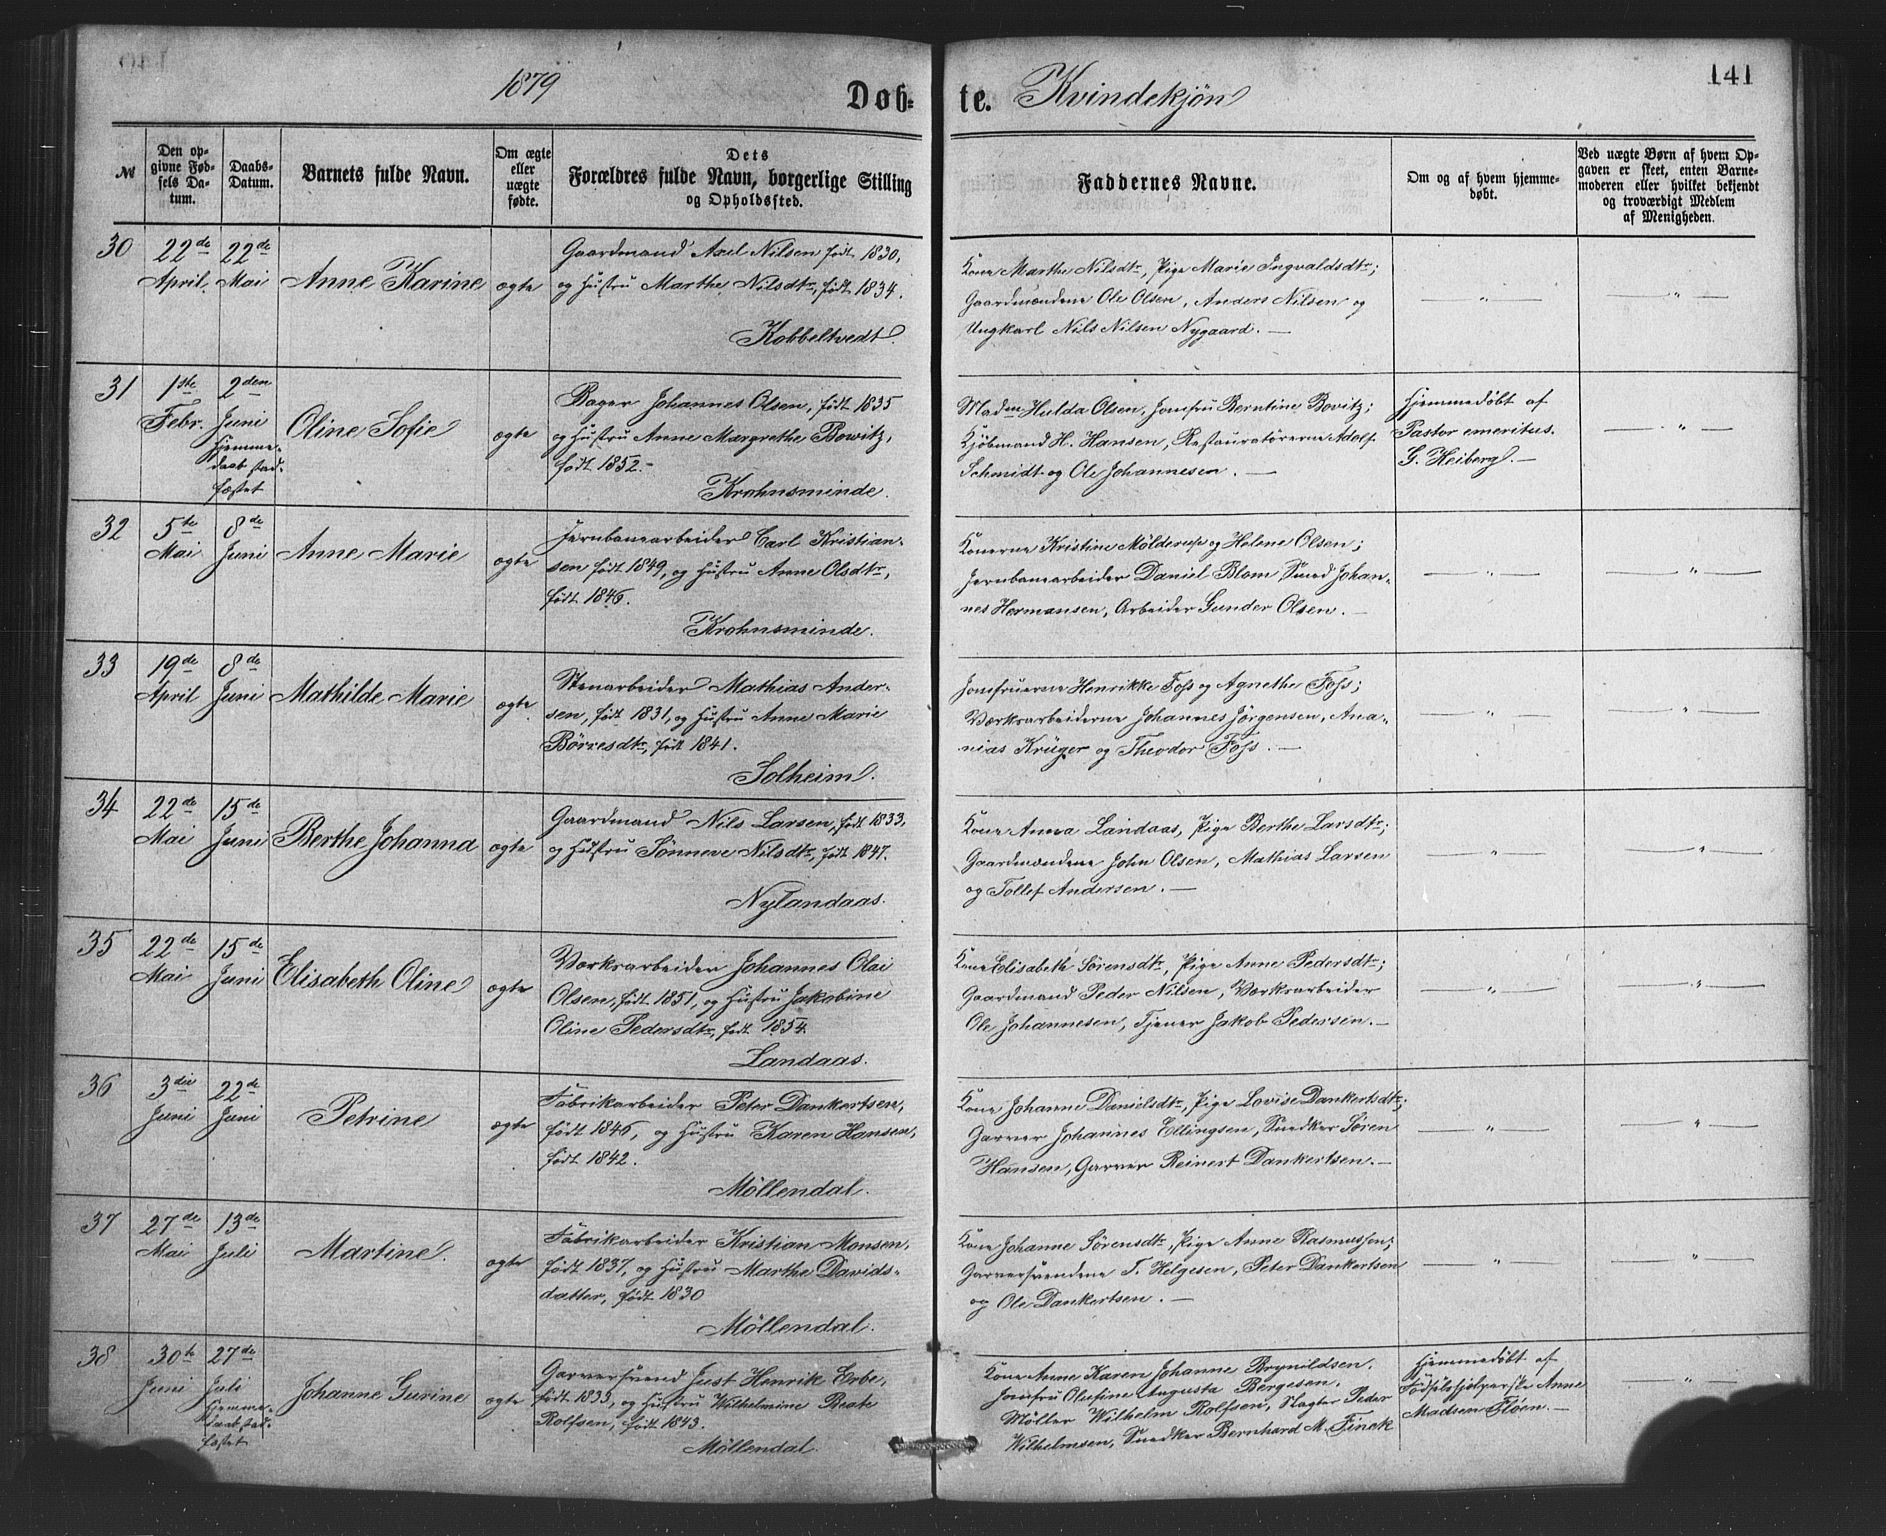 1879
Døb=
te. Kvindekjøn
141
№
Den op-
givne Fød-
sels Da-
tum.
Daabs-
Datum.
Barnets fulde Navn.
Om ægte
eller
uægte
fødte.
Dets
Forældres fulde Navn, borgerlige Stilling
og Opholdssted.
Faddernes Navne.
Om og af hvem hjemme-
døbt.
Ved uægte Børn af hvem Op-
gaven er skeet, enten Barne-
moderen eller hvilket bekjendt
og troværdigt Medlem
af Menigheden.
30
22de
April.
22de
Mai
Anne Karine
ægte
Gaardmand Axel Nilsen født 1830,
og Hustru Marthe Nilsdtr, født 1834.
Kobbeltvedt.
Kone Marthe Nilsdtr, Pige Marie Ingvaldsdtr;
Gaardmændene Ole Olsen, Anders Nilsen og
Ungkarl Nils Nilsen Nygaard. —
— " —
— " —
31
1ste
Febr.
2den
Juni
hjemme-
daab stad-
fæstet
Oline Sofie
ægte
Bager Johannes Olsen, født 1835
og Hustru Anne Margrethe Bowitz,
født 1852.-
Krohnsminde.
Madm Hulda Olsen, Jomfru Berntine Bovitz;
Kjøbmand H. Hansen, Restauratørerne Adolf
Schmidt og Ole Johannesen. —
Hjemmedøbt af
Pastor emeritus.
G. Heiberg. —
— " —
32
5te
Mai
8de
Juni
Anne Marie
ægte
Jernbanearbeider Carl Kristian-
sen født 1849, og Hustru Anne Olsdtr,
født 1846.
Krohnsminde.
Konerne Kristine Mölderup og Helene Olsen;
Jernbanearbeider Daniel Blom Smed Johan-
nes Hermansen, Arbeider Gunder Olsen. —
— " —
— " —
33
19de
April
8de
Juni
Mathilde Marie
ægte
Stenarbeider Mathias Ander-
sen, født 1831, og Hustru Anne Marie
Börresdtr, født 1841.
Solheim.
Jomfruerne Henrikke Foss og Agnethe Foss;
Værksarbeiderne Johannes Jörgensen, Ana-
nias Krüger og Theodor Foss. —
— " —
— " —
34
22de
Mai
15de
Juni
Berthe Johanna
ægte
Gaardmand Nils Larsen, født 1833,
og Hustru Sönneve Nilsdtr, født 1847.
Nylandaas.
Kone Anna Landaas, Pige Berthe Larsdtr;
Gaardmændene John Olsen, Mathias Larsen
og Tollef Andersen. —
— " —
— " —
35
22de
Mai
15de
Juni
Elisabeth Oline
ægte
Værksarbeider Johannes Olai
Olsen, født 1851, og Hustru Jakobine
Oline Pedersdtr, født 1854.
Landaas.
Kone Elisabeth Sörensdtr, Pige Anne Pedersdtr;
Gaardmand Peder Nilsen, Værksarbeider
Ole Johannesen, Tjener Jakob Pedersen. —
— " —
— " —
36
3die
Juni
22de
Juni
Petrine
ægte
Fabrikarbeider Peter Dankertsen,
født 1846, og Hustru Karen Hansen,
født 1842.
Möllendal.
Kone Johanne Danielsdtr, Pige Lovise Dankertsdtr;
Garver Johannes Ellingsen, Snedker Sören
Hansen, Garver Reinert Dankertsen. —
— " —
— " —
37
27de
Mai
13de
Juli
Martine.
ægte
Fabrikarbeider Kristian Monsen,
født 1837, og Hustru Marthe Davids-
datter, født 1830
Möllendal.
Kone Johanne Sörensdtr, Pige Anne Rasmussen;
Garversvendene T. Helgesen, Peter Dankertsen
og Ole Dankertsen. —
— " —
— " —
38
30te
Juni
27de
Juli
hjemme-
daab stad-
fæstet
Johanne Gurine
ægte
Garversvend Just Henrik Erbe,
født 1833, og Hustru Wilhelmine Beate
Rolfsen, født 1843.
Möllendal.
Kone Anne Karen Johanne Brynildsen,
Jomfru Olefine Augusta Bergesen,
Möller Wilhelm Rolfsen, Slagter Peder
Wilhelmsen, Snedker Bernhard M. Finck
Hjemmedøbt af
Fødselshjælperske Anne
Madsen Fløen. —
— " —